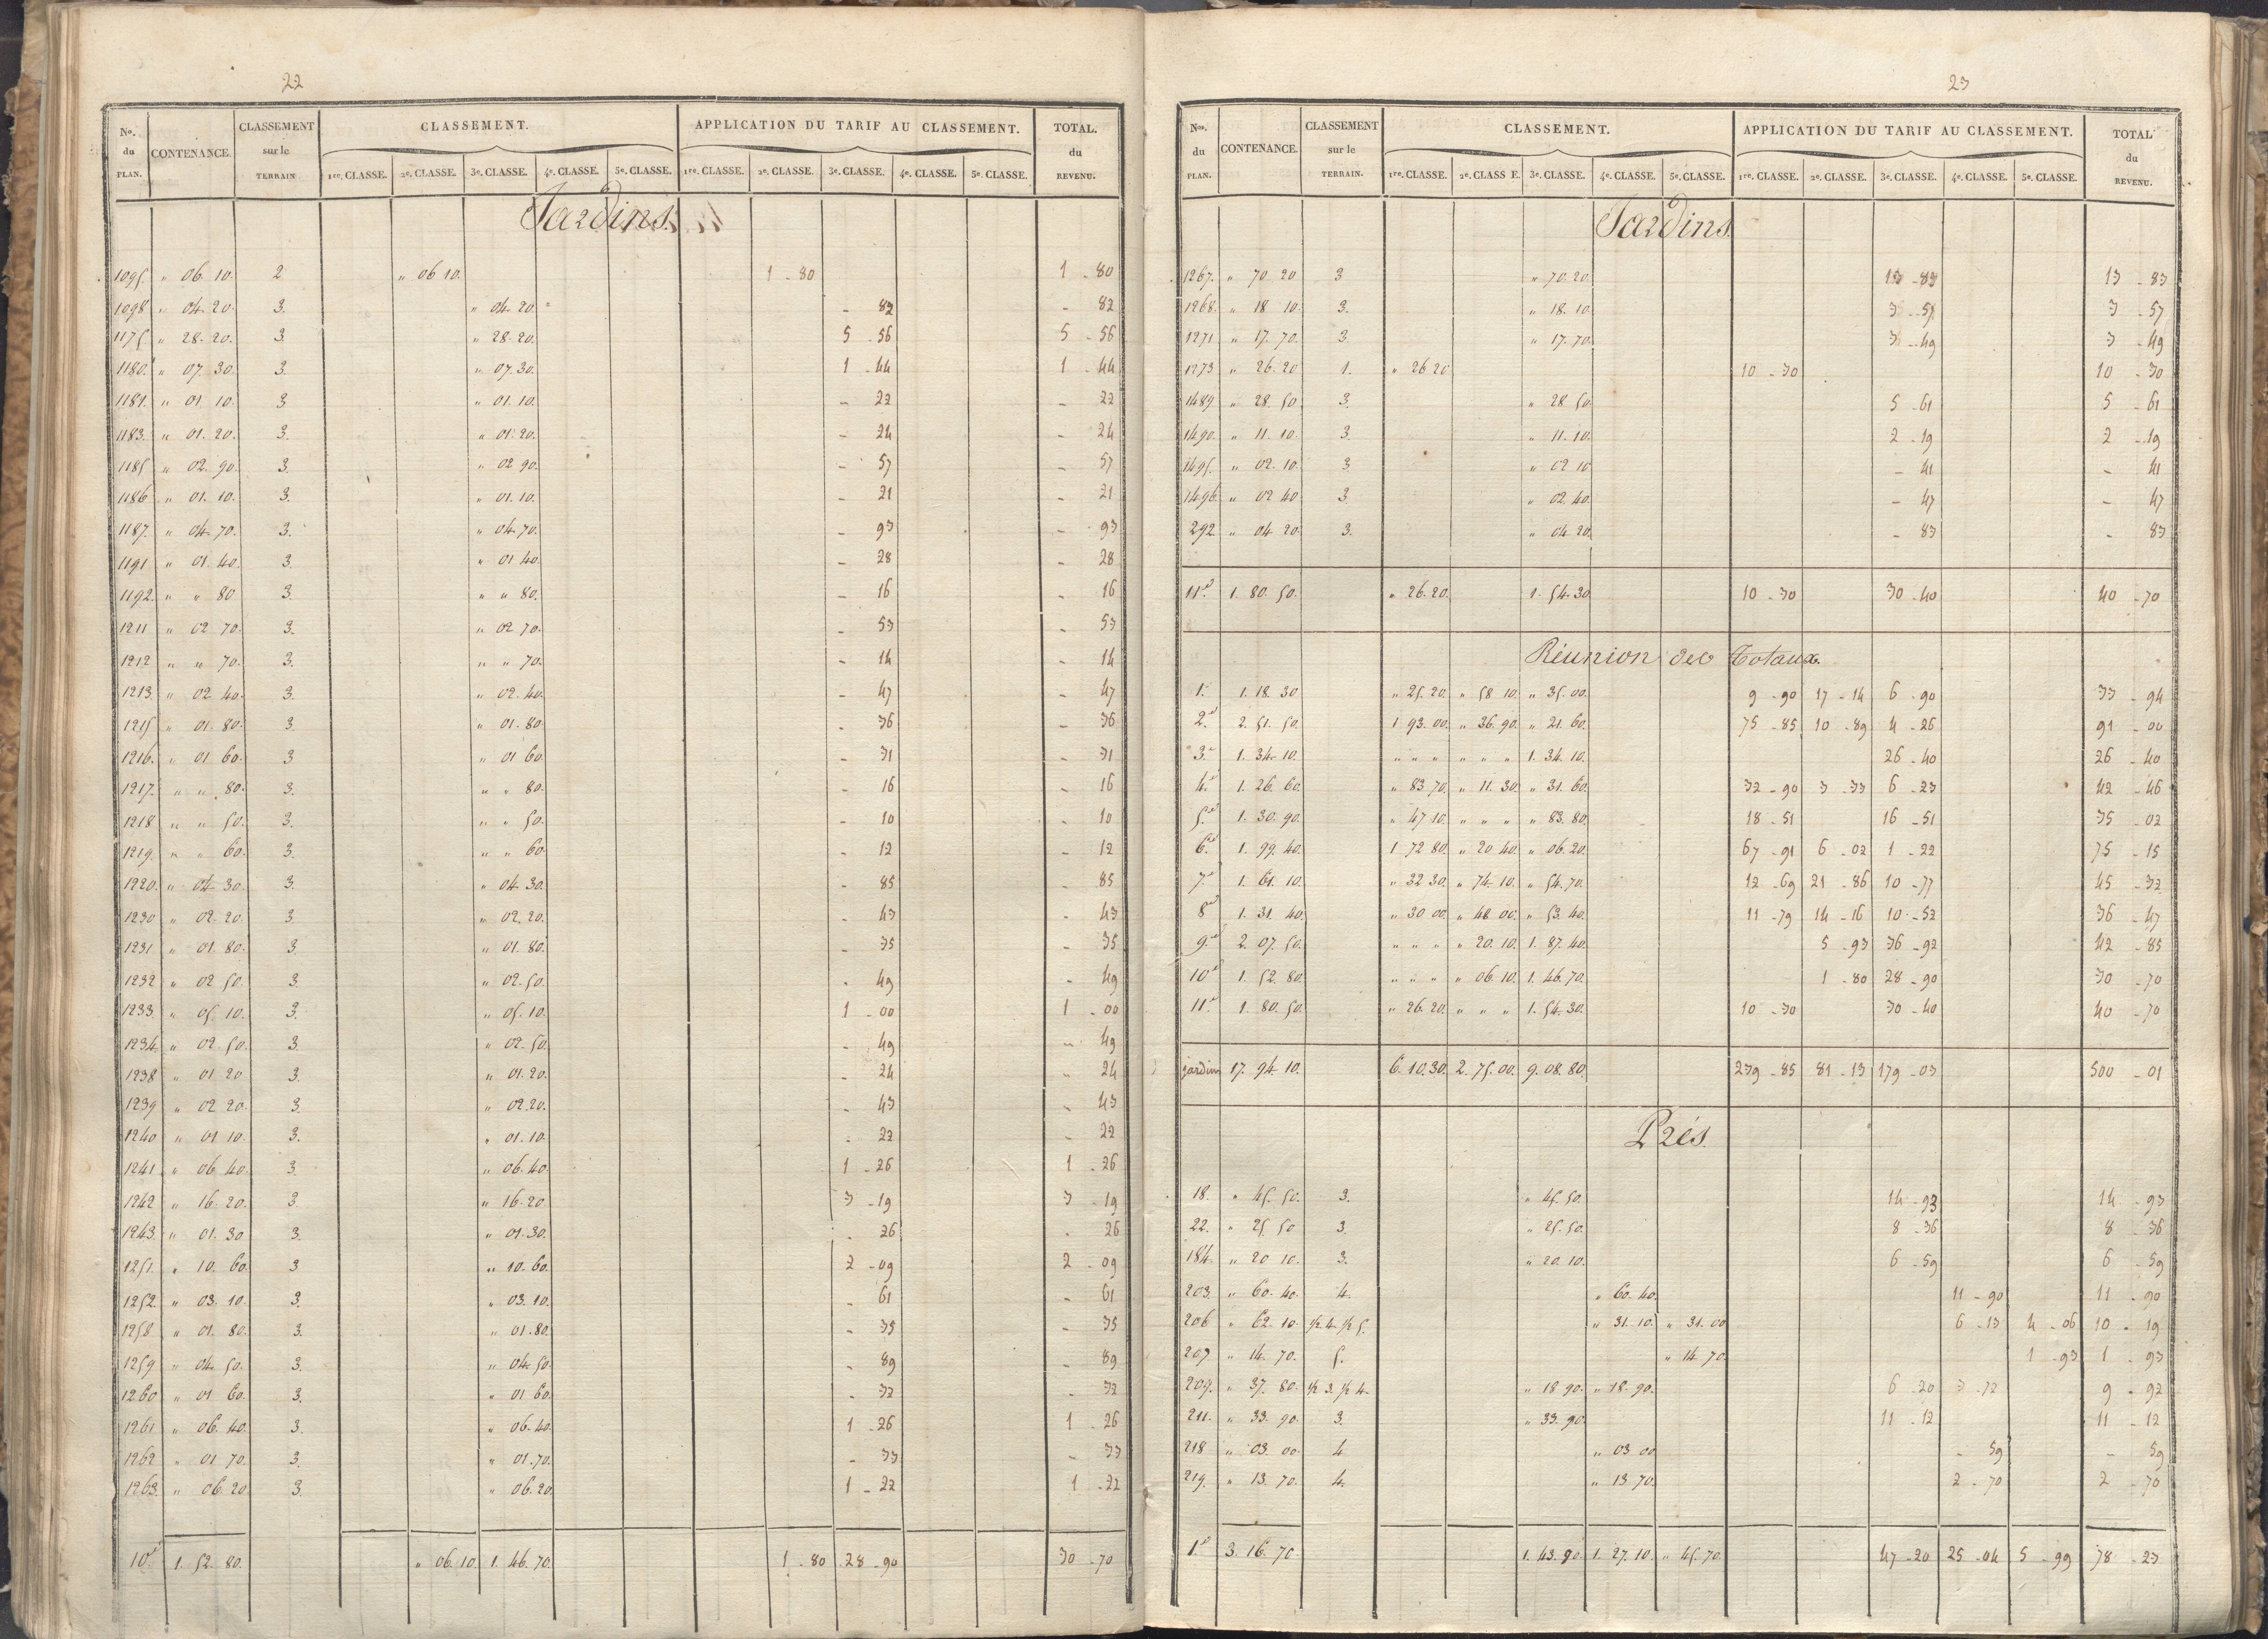 22
No. du PLAN. CONTENANCE. CLASSEMENT sur le TERRAIN CLASSEMENT. APPLICATION DU TARIF AU CLASSEMENT. TOTAL. du REVENU.
1re. CLASSE. 2e. CLASSE. 3e. CLASSE. 4e. CLASSE. 5e. CLASSE. 1re. CLASSE. 2e. CLASSE. 3e. CLASSE. 4e. CLASSE. 5e. CLASSE.
Jardins.
1095. " 06. 10. 2 " 06 10. 1 - 80 1 - 80
1098 " 04. 20. 3. " 04. 20. - 82 - 82
1175. " 28. 20. 3. " 28. 20. 5 - 56 5 - 56
1180. " 07. 30. 3. " 07. 30. 1 - 44 1 - 44
1181. " 01. 10. 3 " 01. 10. - 22 - 22
1183. " 01. 20. 3. " 01. 20. - 24 - 24
1185 " 02. 90. 3. " 02 90. - 57 - 57
1186 " 01. 10. 3. " 01. 10. - 21 - 21
1187. " 04. 70. 3. " 04. 70. - 93 - 93
1191 " 01. 40. 3. " 01 40. - 28 - 28
1192. " " 80 3. " " 80. - 16 - 16
1211 " 02 70. 3. " 02 70. - 53 - 53
1212 " " 70. 3. " " 70. - 14 - 14
1213. " 02 40. 3. " 02. 40. - 47 - 47
1215 " 01. 80. 3 " 01. 80. - 36 - 36
1216. " 01 60. 3 " 01 60. - 31 - 31
1217. " " 80. 3. " " 80. - 16 - 16
1218 " " 50. 3. " " 50. - 10 - 10
1219. " " 60. 3. " " 60. - 12 - 12
1220. " 04 30. 3. " 04. 30. - 85 - 85
1230 " 02. 20. 3 " 02. 20. - 43 - 43
1231 " 01. 80. 3. " 01. 80. - 35 - 35
1232 " 02 50. 3. " 02. 50. - 49 - 49
1233. " 05. 10. 3. " 05. 10. 1 - 00 1 - 00
1234. " 02. 50. 3. " 02. 50. - 49 - 49
1238 " 01 20 3. " 01. 20. - 24 - 24
1239 " 02 20. 3. " 02. 20. - 43 - 43
1240 " 01 10. 3. " 01. 10. - 22 - 22
1241 " 06 40. 3. " 06. 40. 1 - 26 1 - 26
1242 " 16. 20. 3 " 16. 20. 3 - 19 3 - 19
1243. " 01. 30 3. " 01. 30. - 26 - 26
1251. " 10. 60. 3 " 10. 60. 2 - 09 2 - 09
1252. " 03. 10. 3. " 03. 10. - 61 - 61
1258. " 01. 80. 3. " 01. 80. - 35 - 35
1259 " 04. 50. 3. " 04. 50. - 89 - 89
1260 " 01 60. 3. " 01 60. - 32 - 32
1261 " 06. 40. 3. " 06. 40. 1 - 26 1 - 26
1262 " 01 70. 3. " 01. 70. - 33 - 33
1263. " 06. 20 3. " 06. 20 1 - 22 1 - 22
10e 1. 52. 80. " 06. 10. 1. 46. 70. 1 - 80 28 - 90 30 - 70
23
Nos. du PLAN. CONTENANCE. CLASSEMENT sur le TERRAIN. CLASSEMENT. APPLICATION DU TARIF AU CLASSEMENT. TOTAL du REVENU.
1re. CLASSE. 2e. CLASS E. 3e. CLASSE. 4e. CLASSE. 5e. CLASSE. 1re. CLASSE. 2e. CLASSE. 3e. CLASSE. 4e. CLASSE. 5e. CLASSE.
Jardins.
1267. " 70 20 3 " 70. 20. 13 - 83 13 - 83
1268. " 18 10. 3. " 18. 10. 3 - 57 3 - 57
1271 " 17. 70. 3. " 17. 70. 3 - 49 3 - 49
1273 " 26. 20 1. " 26 20. 10 - 30 10 - 30
1489 " 28. 50. 3. " 28 50. 5 - 61 5 - 61
1490. " 11. 10. 3. " 11. 10. 2 - 19 2 - 19
1495. " 02. 10. 3 " 02 10. - 41 - 41
1496. " 02 40. 3. " 02 40. - 47 - 47
292. " 04 20. 3. " 04 20. - 83 - 83
11e 1. 80. 50. " 26. 20. 1. 54. 30. 10 - 30 30 - 40 40 - 70
Réunion des Totaux.
1. 1. 18. 30 " 25. 20. " 58 10. " 35. 00. 9 - 90 17 - 14 6 - 90 33 - 94
2. 2. 51. 50. 1. 93. 00. " 36. 90. " 21. 60. 75 - 85 10 - 89 4 - 26 91 - 00
3. 1. 34. 10. " " " " " " 1. 34. 10. 26 - 40 26 - 40
4. 1. 26. 60. " 83 70. " 11. 30. " 31. 60. 32 - 90 3 - 33 6 - 23 42 - 46
5. 1. 30. 90. " 47 10. " " " " 83. 80. 18 - 51 16 - 51 35 - 02
6. 1. 99. 40. 1 72 80. " 20 40. " 06. 20. 67 - 91 6 - 02 1 - 22 75 - 15
7. 1. 61. 10. " 32 30. " 74. 10. " 54. 70. 12 - 69 21 - 86 10 - 77 45 - 32
8 1. 31. 40. " 30 00. " 48 00. " 53. 40. 11 - 79 14 - 16 10 - 52 36 - 47
9. 2. 07. 50. " " " " 20. 10. 1. 87. 40. 5 - 93 36 - 92 42 - 85
10 1. 52. 80. " " " " 06. 10. 1. 46. 70. 1 - 80 28 - 90 30 - 70
11. 1. 80. 50. " 26. 20. " " " 1. 54. 30. 10 - 30 30 - 40 40 - 70
jardins 17. 94. 10. 6. 10. 30. 2. 75. 00. 9. 08. 80 239 - 85 81 - 13 179 - 03 500 - 01
Prés.
18. " 45. 50. 3. " 45. 50. 14 - 93 14 - 93
22. " 25 50 3. " 25. 50. 8 - 36 8 - 36
184. " 20 10. 3. " 20. 10. 6 - 59 6 - 59
203. " 60. 40. 4. " 60. 40. 11 - 90 11 - 90
206 " 62. 10. 1/2. 4. 1/2 5. " 31. 10. " 31. 00 6 - 13 4 - 06 10 - 19
207 " 14. 70. 5. " 14. 70. 1 - 93 1 - 93
209. " 37. 80. 1/2 3. 1/2 4. " 18 90. " 18. 90. 6 - 20 3 - 72 9 - 92
211. " 33. 90. 3. " 33. 90. 11 - 12 11 - 12
218 " 03. 00. 4 " 03 00 - 59 - 59
219. " 13. 70. 4. " 13 70. 2 - 70 2 - 70
1. 3. 16. 70. 1. 43. 90. 1. 27. 10. " 45. 70. 47 - 20 25 - 04 5 - 99 78 - 23